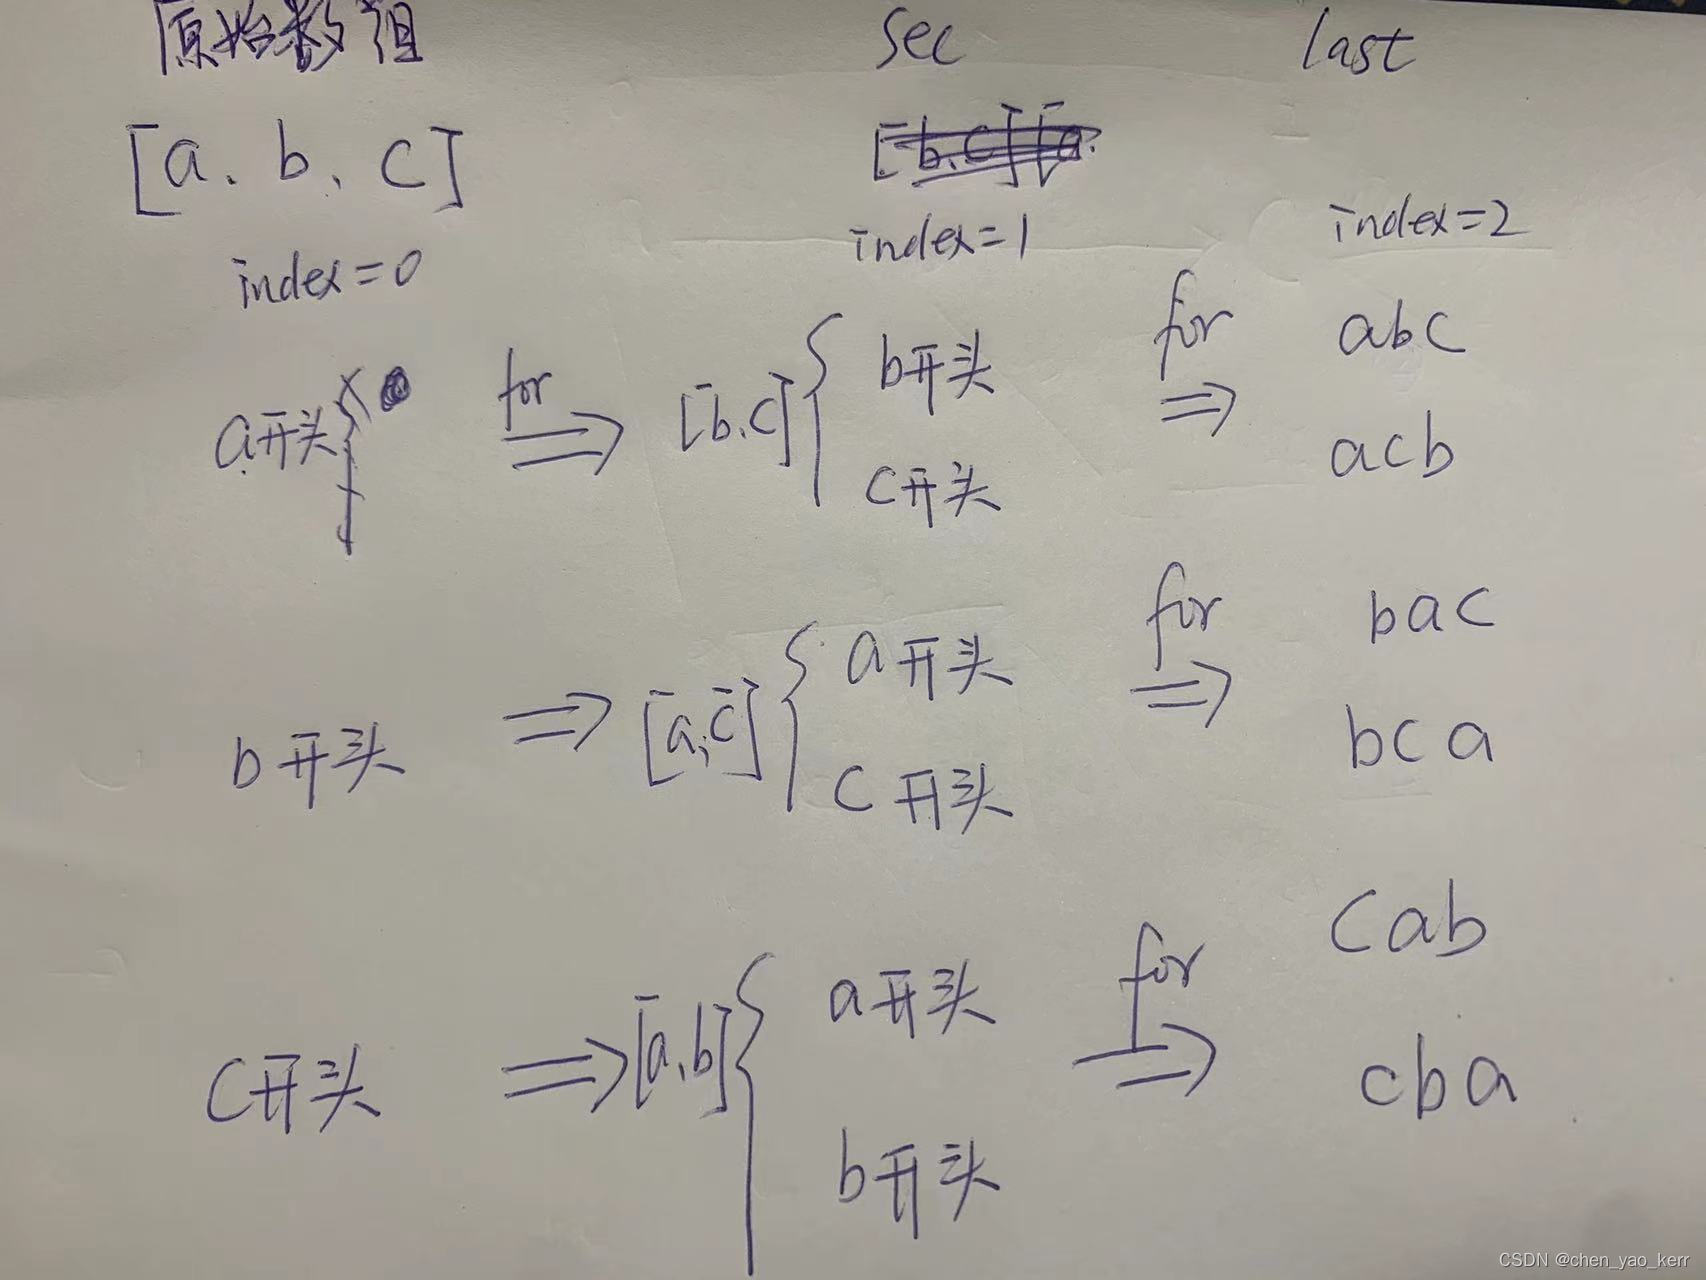 原始数组 sec last
[a、b、c]
index=0 index=1 index=2
a开头 for [b.c] b开头 for abc
c开头 acb
b开头 [a,c] a开头 for bac
c开头 bca
c开头 [a,b] a开头 for cab
b开头 cba
CSDN @chen_yao_kerr